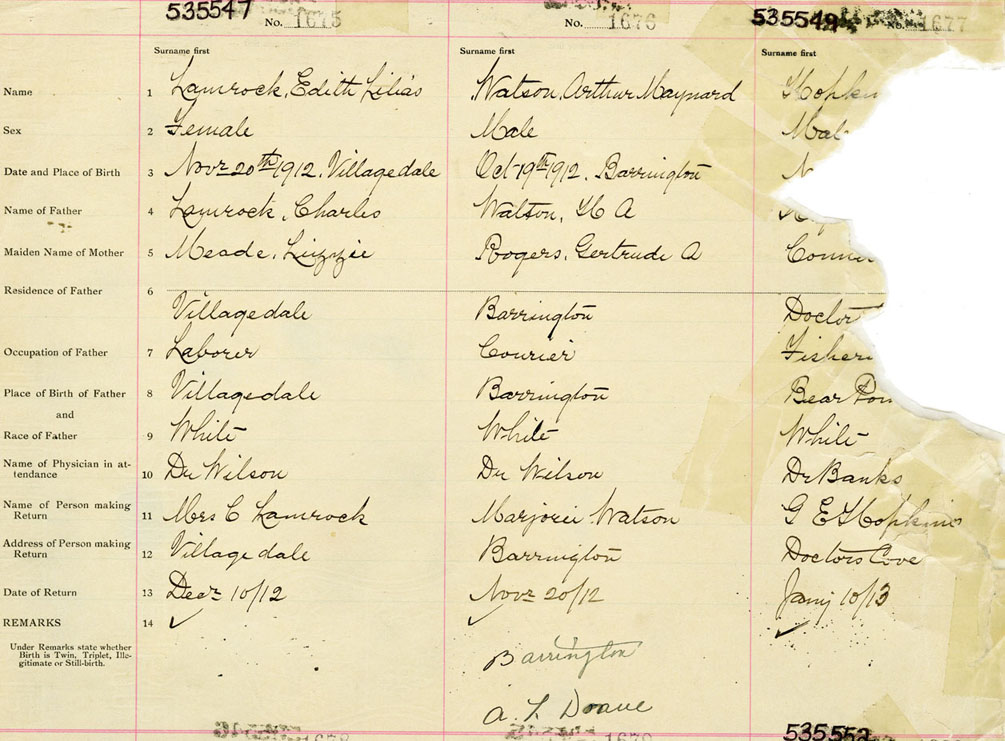 535547 No. 1675 No. 1676 535549 No. 1677
Surname first Surname first Surname first
Name 1 Lamrock, Edith Lilias Watson, Arthur Maynard
Sex 2 Female Male
Date and Place of Birth 3 Novr 20th 1912, Villagedale Oct 19th 1912, Barrington
Name of Father 4 Lamrock, Charles Watson, H A
Maiden Name of Mother 5 Meade, Lizzie Rogers, Gertrude A
Residence of Father 6
Villagedale Barrington Doctor
Occupation of Father 7 Laborer Courier
Place of Birth of Father 8 Villagedale Barrington Bear
and
Race of Father 9 White White White
Name of Physician in at-
tendance 10 Dr Wilson Dr Wilson Dr Banks
Name of Person making
Return 11 Mrs C Lamrock Marjorie Watson G E Hopkins
Address of Person making
Return 12 Villagedale Barrington Doctors Cove
Date of Return 13 Decr 10/12 Novr 20/12 Jany 10/13
REMARKS 14 ✓ ✓ ✓
Under Remarks state whether
Birth is Twin, Triplet, Ille-
gitimate or Still-birth.
Barrington
A. L. Doane
535552